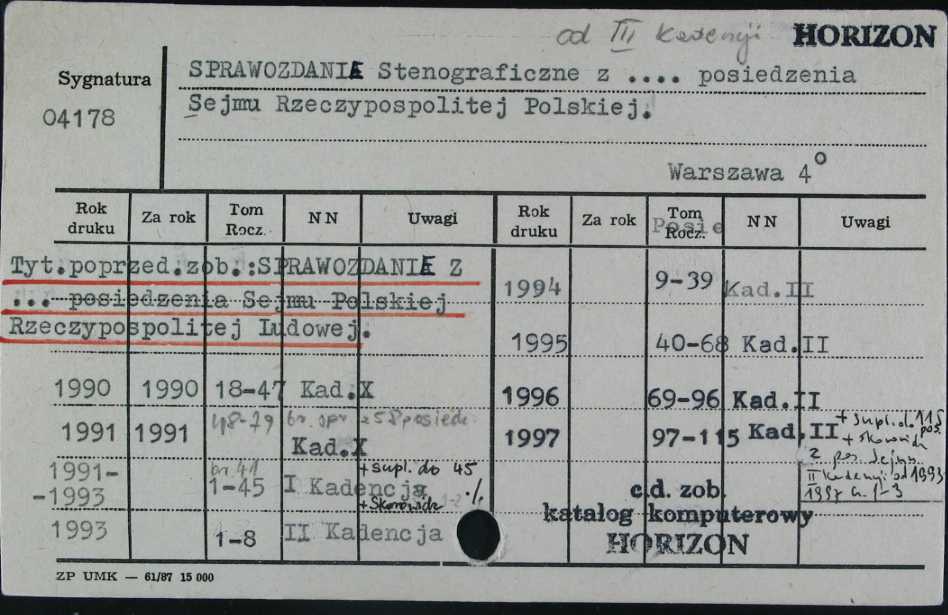 od III Kadencji HORIZON
Sygnatura
04178
SPRAWOZDANIE Stenograficzne z .... posiedzenia
Sejmu Rzeczypospolitej Polskiej.
Warszawa 4°
Rok druku Za rok Tom Rocz. NN Uwagi
Rok druku Za rok Tom Rocz. Posie NN Uwagi
Tyt.poprzed.zob.:SPRAWOZDANIE Z
... posiedzenia Sejmu Polskiej
Rzeczypospolitej Ludowej.
1990 1990 18-47 Kad.X
1991 1991 48-79 Kad.X
1991-
-1993 br 41 1-45 I Kadencja +supl. do 45 ./. +Skorowidz
1993 1-8 II Kadencja
1994 9-39 Kad.II
1995 40-68 Kad.II
1996 69-96 Kad.II
1997 97-115 Kad.II + supl. do 115 pos.
+ skorowidz
z pos. Sejmu
II Kadencji od 1993
1997 cz. 1-3
c.d. zob.
katalog komputerowy
HORIZON
ZP UMK — 61/87 15 000